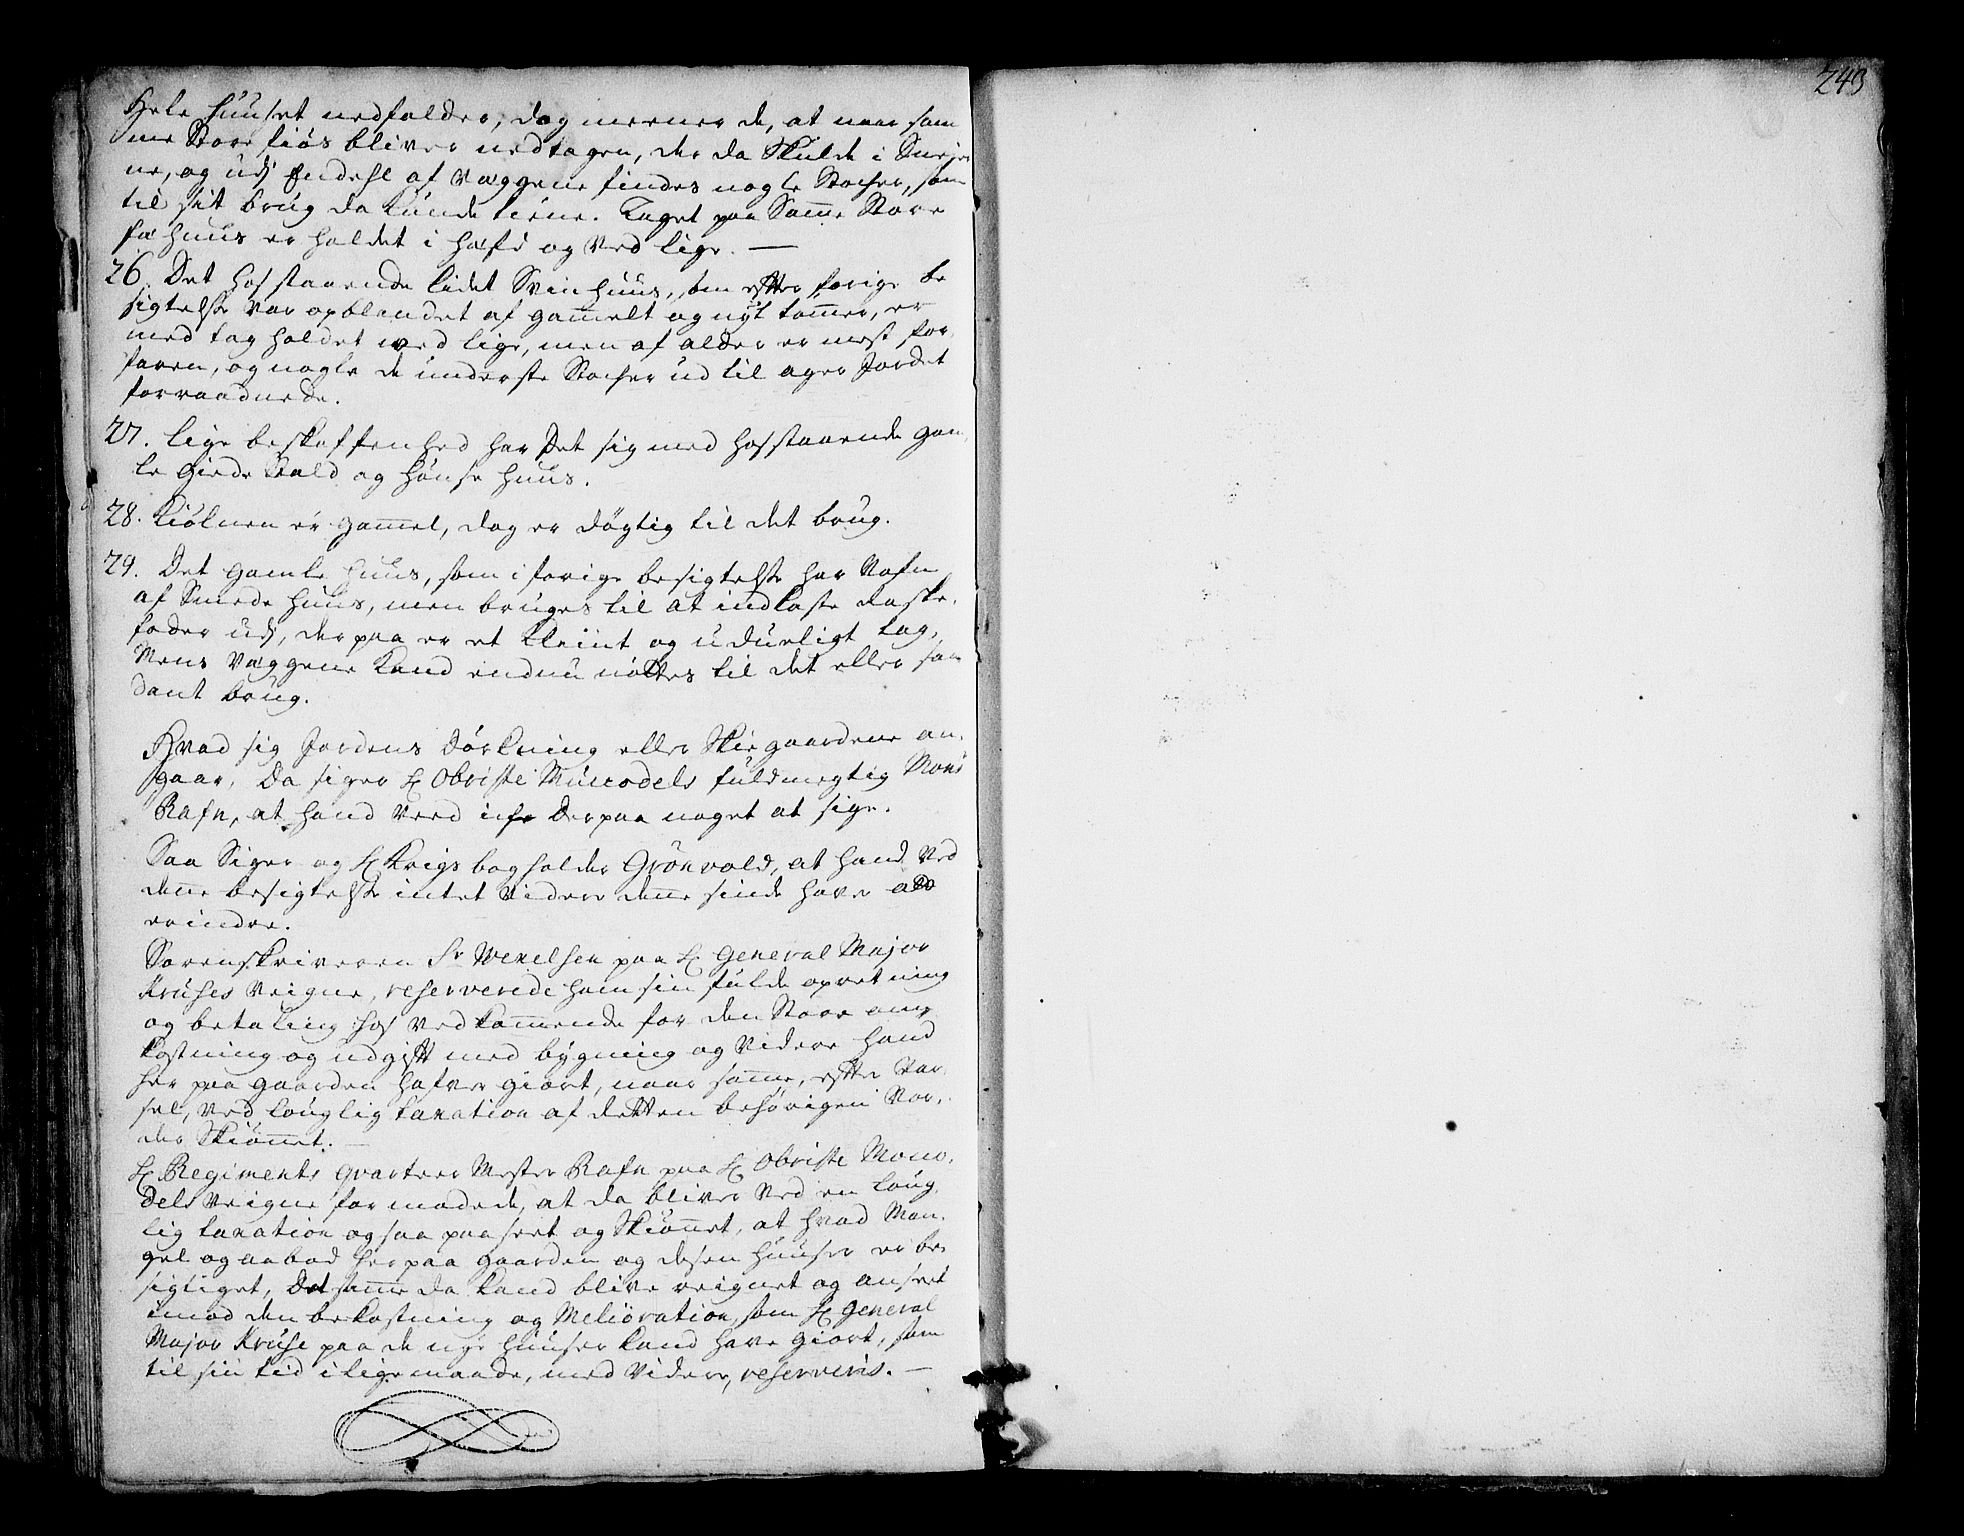 Hele huuset nedfalder, dog meener de, at naar sam
me Store fiøs bliver nedtagen, der da skulde i
ne, og udj Endehl af Væggene findes nogle Stocher, som
til sit brug da kunde tiene. Taget paa Samme Store
fæhuus er holdet i hæfd og ved lige. —
26. Det hosstaaende lidet Sviinhuus, som efter forige be
sigtelse var opblendet af gammelt og nyt tømmer, er
med tag holdet ved lige, men af alder er mest for
faren, og nogle de underste Stocher ud til ager Jordet
forraadnede.
27. lige beskaffenhed har Det sig med hosstaaende gam
le giede Stald og hønse huus.
28. Kiølnen er gammel, dog er døgtig til det brug.
29. Det gamle huus, som i forige besigtelse har Nafn
af Smede huus, men bruges til at indkaste daske
foder udj, derpaa er et kleint og udueligt tag,
Mens Væggene kand endnu nøttes til det eller saa
dant brug.
Hvad sig Jordens dørkning eller Skiegaardene an
gaar, Da siger Hr Obriste Munodels fuldmegtig Mons
Rafn, at hand veed icke derpaa noget at sige.
Saa Siger og Hr Krigsbogholder Grönvold, at hand ved
denne besigtelse intet videre denne sinde haver at
erindre.
Sorenskriveren Sr Wexelsen paa Hr General Major
Kruses Veigne, reserverede ham sin fulde opretning
og betaling hos vedkommende for den Store om
kostning og udgift med bygning og videre hand
her paa gaarden hafver giort, naar samme, efter Var
sel, ved louglig taxation af dertten behørigen vor
der Skiønnet. —
Hr Regiments Qvarteer Mester Rafn paa Hr Obriste Mono
dels Veigne formodede, at da bliver ved en loug
lig taxation ogsaa paaseet og Skiønnet, at hvad Man
gel og aabod her paa gaarden og desen huuser er be
sigtiget, Det samme da kand blive reignet og anseet
imod den bekostning og Meliøration, som Hr General
Major Kruse paa de nye huuser kand have giort, som
til sin tid i ligemaade, med videre, reserveris. —
243